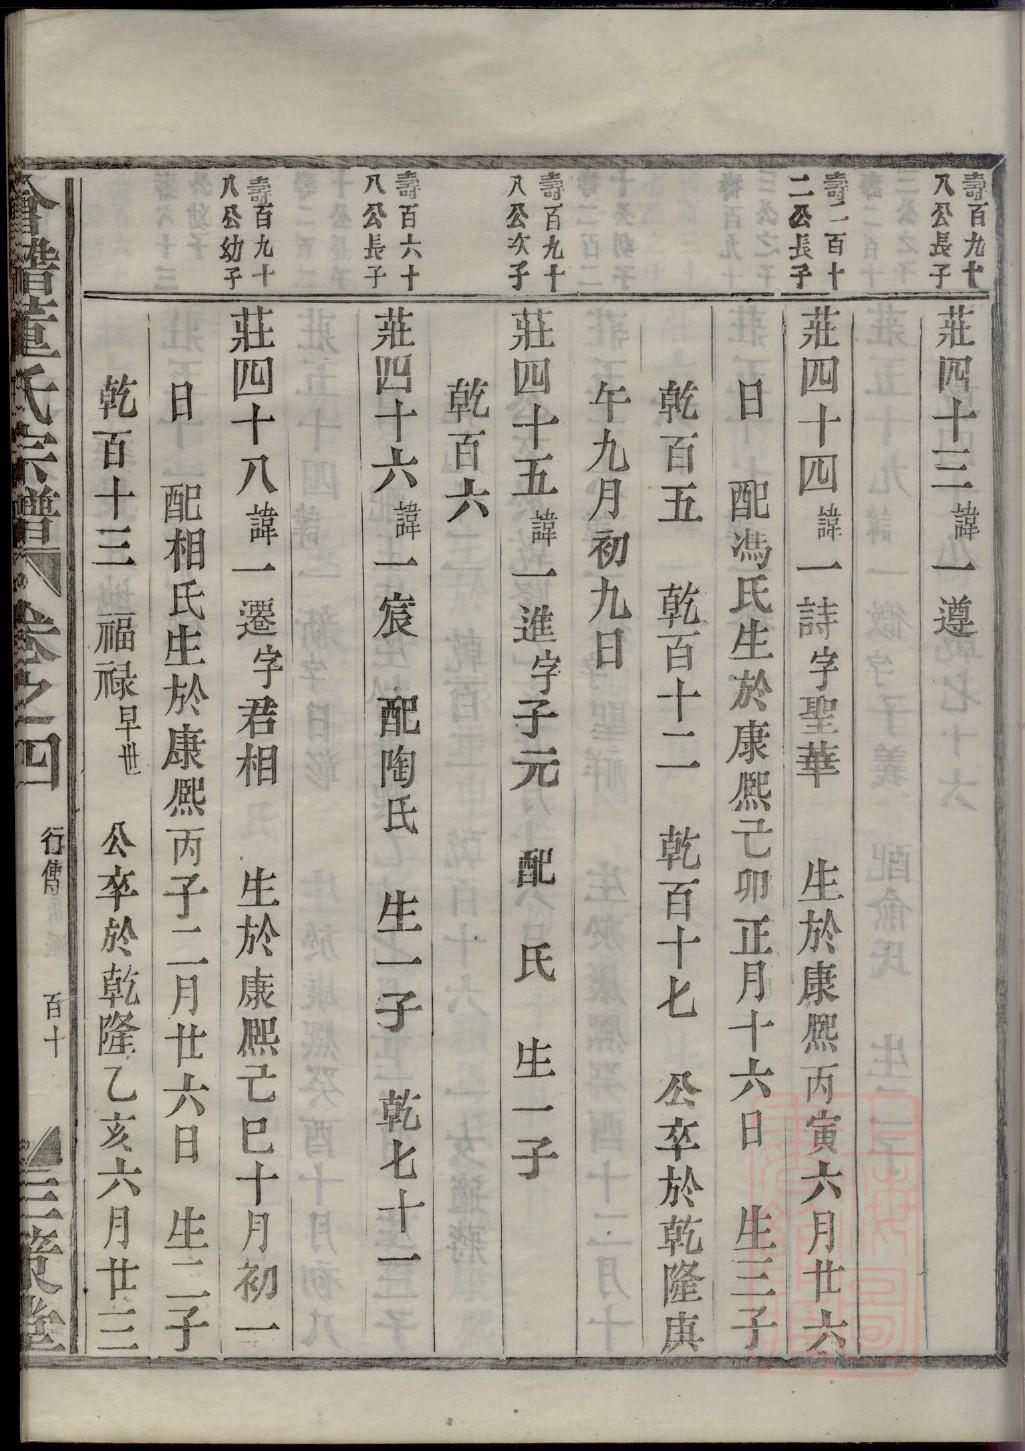 壽百九十
八公長子
莊四十三諱一遵
壽二百十
二公長子
莊四十四諱一詩字聖華 生於康熙丙寅六月廿六
日 配馮氏生於康熙己卯正月十六日 生三子
乾百五 乾百十二 乾百十七 公卒於乾隆庚
午九月初九日
壽百九十
八公次子
莊四十五諱一進字子元 配 氏 生一子
乾百六
壽百六十
八公長子
莊四十六諱一宸 配陶氏 生一子 乾七十一
壽百九十
八公幼子
莊四十八諱一遷字君相 生於康熙己巳十月初一
日 配相氏生於康熙丙子二月廿六日 生二子
乾百十三 福禄早世 公卒於乾隆乙亥六月廿三
會稽董氏宗譜 卷之四 行傳 百十 三策堂